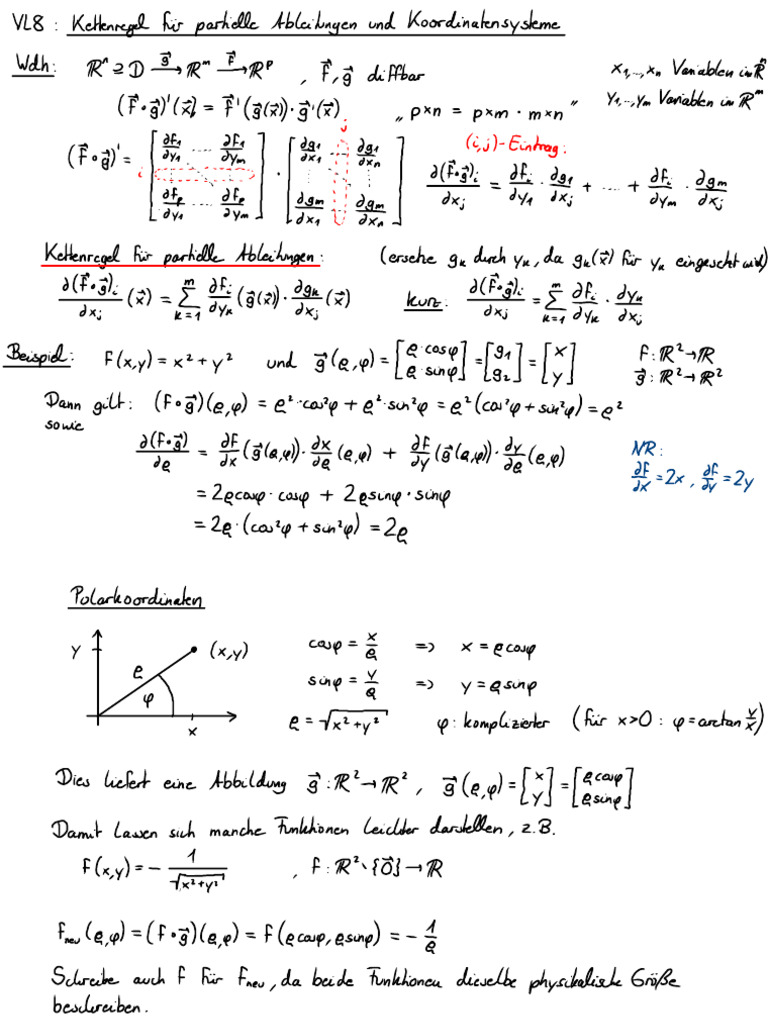 VL8 : Kettenregel für partielle Ableitungen und Koordinatensysteme
Wdh: ℝⁿ ⊇ D →(g⃗) ℝᵐ →(f⃗) ℝᵖ , f⃗, g⃗ diffbar
x₁,…,xₙ Variablen in ℝⁿ
y₁,…,yₘ Variablen in ℝᵐ
(f⃗∘g⃗)'(x⃗) = f⃗'(g⃗(x⃗))·g⃗'(x⃗) „p×n = p×m · m×n"
(f⃗∘g⃗)' = [∂f₁/∂y₁ …… ∂f₁/∂yₘ ; ∂fₚ/∂y₁ …… ∂fₚ/∂yₘ] · [∂g₁/∂x₁ …… ∂g₁/∂xₙ ; ∂gₘ/∂x₁ …… ∂gₘ/∂xₙ]
i
j
(i,j)-Eintrag:
∂(f⃗∘g⃗)ᵢ/∂xⱼ = ∂fᵢ/∂y₁ · ∂g₁/∂xⱼ + … + ∂fᵢ/∂yₘ · ∂gₘ/∂xⱼ
Kettenregel für partielle Ableitungen: (ersetze gₖ durch yₖ, da gₖ(x⃗) für yₖ eingesetzt wird)
∂(f⃗∘g⃗)ᵢ/∂xⱼ (x⃗) = Σₖ₌₁ᵐ ∂fᵢ/∂yₖ (g⃗(x⃗))·∂gₖ/∂xⱼ (x⃗) kurz: ∂(f⃗∘g⃗)ᵢ/∂xⱼ = Σₖ₌₁ᵐ ∂fᵢ/∂yₖ · ∂yₖ/∂xⱼ
Beispiel: f(x,y) = x² + y² und g⃗(ϱ,φ) = [ϱ·cosφ ; ϱ·sinφ] = [g₁ ; g₂] = [x ; y] f: ℝ² → ℝ
g⃗: ℝ² → ℝ²
Dann gilt: (f∘g⃗)(ϱ,φ) = ϱ²·cos²φ + ϱ²·sin²φ = ϱ²(cos²φ + sin²φ) = ϱ²
sowie
∂(f∘g⃗)/∂ϱ = ∂f/∂x (g⃗(ϱ,φ))·∂x/∂ϱ (ϱ,φ) + ∂f/∂y (g⃗(ϱ,φ))·∂y/∂ϱ (ϱ,φ)
NR:
∂f/∂x = 2x , ∂f/∂y = 2y
= 2ϱcosφ · cosφ + 2ϱsinφ · sinφ
= 2ϱ·(cos²φ + sin²φ) = 2ϱ
Polarkoordinaten
y (x,y) ϱ φ x
cosφ = x/ϱ => x = ϱcosφ
sinφ = y/ϱ => y = ϱsinφ
ϱ = √(x²+y²) φ: komplizierter (für x>0 : φ = arctan y/x)
Dies liefert eine Abbildung g⃗: ℝ² → ℝ² , g⃗(ϱ,φ) = [x ; y] = [ϱcosφ ; ϱsinφ]
Damit lassen sich manche Funktionen leichter darstellen, z.B.
f(x,y) = − 1/√(x²+y²) , f: ℝ²∖{0⃗} → ℝ
f_neu(ϱ,φ) = (f∘g⃗)(ϱ,φ) = f(ϱcosφ, ϱsinφ) = − 1/ϱ
Schreibe auch f für f_neu, da beide Funktionen dieselbe physikalische Größe
beschreiben.